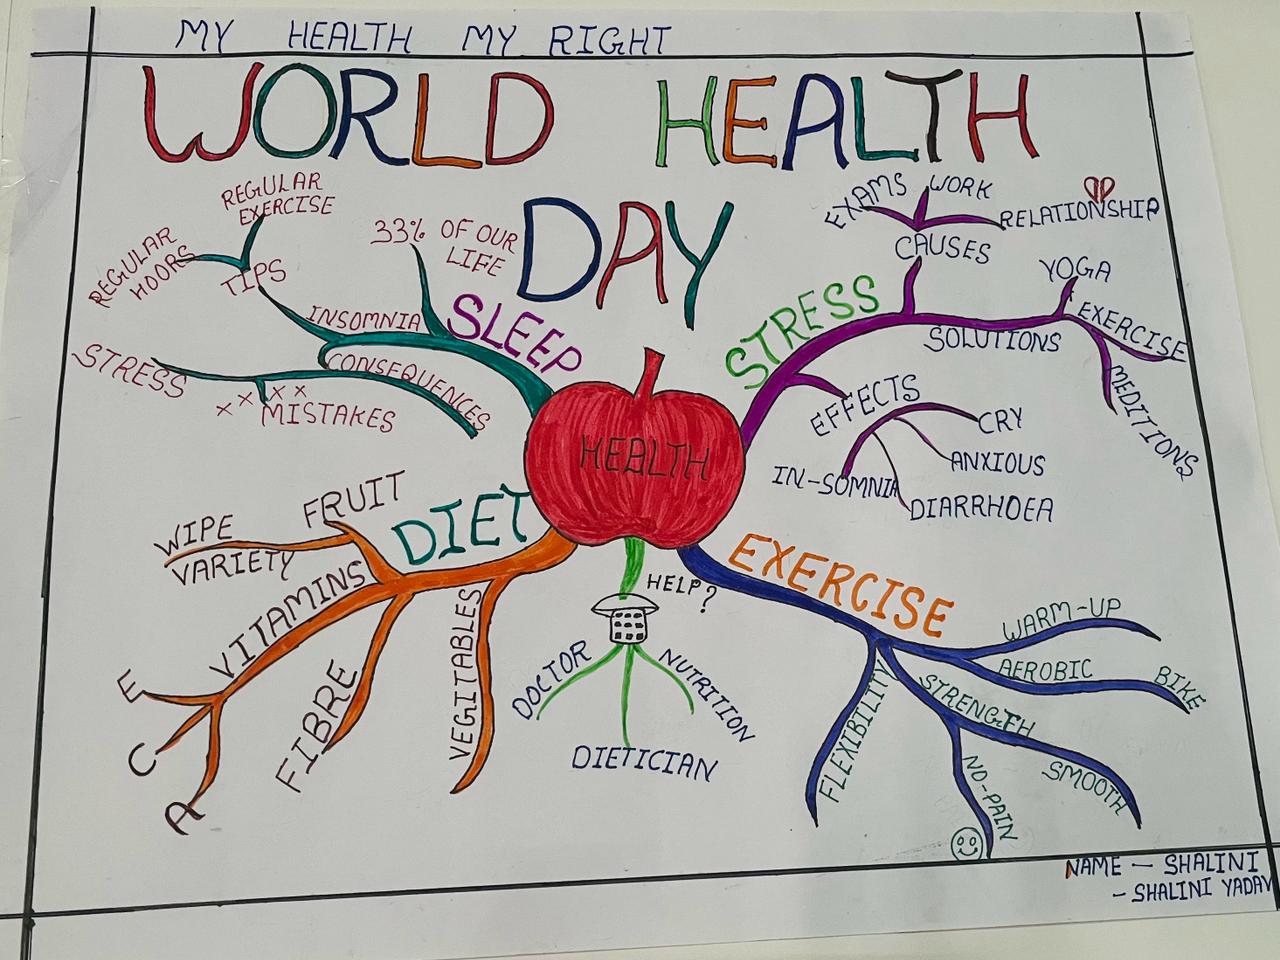 MY HEALTH MY RIGHT
WORLD HEALTH
DAY
REGULAR
EXERCISE
REGULAR
HOORS
TIPS
33% OF OUR
LIFE
SLEEP
INSOMNIA
CONSEQUENCES
STRESS
x x x x
MISTAKES
EXAMS
WORK
RELATIONSHIP
CAUSES
STRESS
YOGA
SOLUTIONS
EXERCISE
MEDITIONS
EFFECTS
CRY
ANXIOUS
IN-SOMNIA
DIARRHOEA
HEALTH
DIET
FRUIT
WIPE
VARIETY
VITAMINS
E
C
A
FIBRE
VEGITABLES
HELP?
DOCTOR
NUTRITION
DIETICIAN
EXERCISE
WARM-UP
AEROBIC
BIKE
STRENGTH
FLEXIBILITY
SMOOTH
NO-PAIN
NAME - SHALINI
- SHALINI YADAV